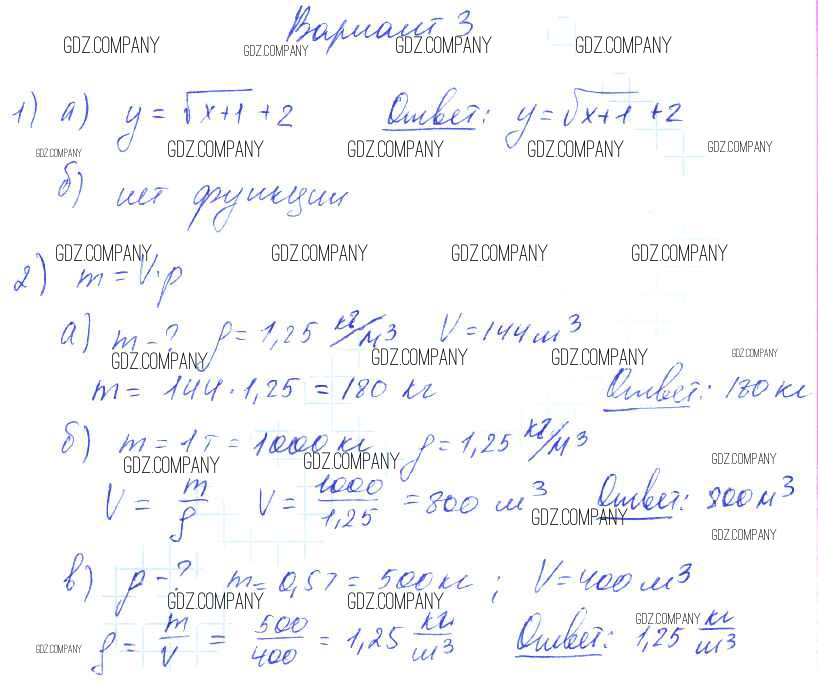 Вариант 3
GDZ.COMPANY GDZ.COMPANY GDZ.COMPANY GDZ.COMPANY
1) а) y = √x+1 + 2 Ответ: y = √x+1 + 2
GDZ.COMPANY GDZ.COMPANY GDZ.COMPANY GDZ.COMPANY GDZ.COMPANY
б) нет функции
GDZ.COMPANY GDZ.COMPANY GDZ.COMPANY GDZ.COMPANY
2) m = V·ρ
а) m – ? ρ = 1,25 кг/м³ V = 144 м³
GDZ.COMPANY GDZ.COMPANY GDZ.COMPANY GDZ.COMPANY
m = 144 · 1,25 = 180 кг Ответ: 180 кг
б) m = 1т = 1000 кг ρ = 1,25 кг/м³
GDZ.COMPANY GDZ.COMPANY GDZ.COMPANY
V = m/ρ V = 1000/1,25 = 800 м³ Ответ: 800 м³
GDZ.COMPANY GDZ.COMPANY
в) ρ – ? m = 0,5т = 500 кг ; V = 400 м³
GDZ.COMPANY GDZ.COMPANY GDZ.COMPANY
ρ = m/V = 500/400 = 1,25 кг/м³ Ответ: 1,25 кг/м³
GDZ.COMPANY